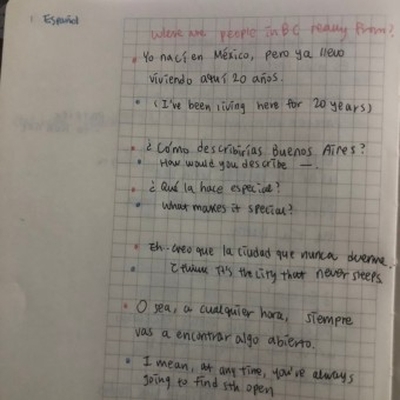 Español
Where are people in BC really from?
Yo nací en México, pero ya llevo
viviendo aquí 20 años.
(I've been living here for 20 years)
¿Cómo describirías Buenos Aires?
How would you describe —.
¿Qué la hace especial?
What makes it special?
Eh. creo que la ciudad que nunca duerme.
I think it's the city that never sleeps
O sea, a cualquier hora, siempre
vas a encontrar algo abierto.
I mean, at any time, you're always
going to find sth open